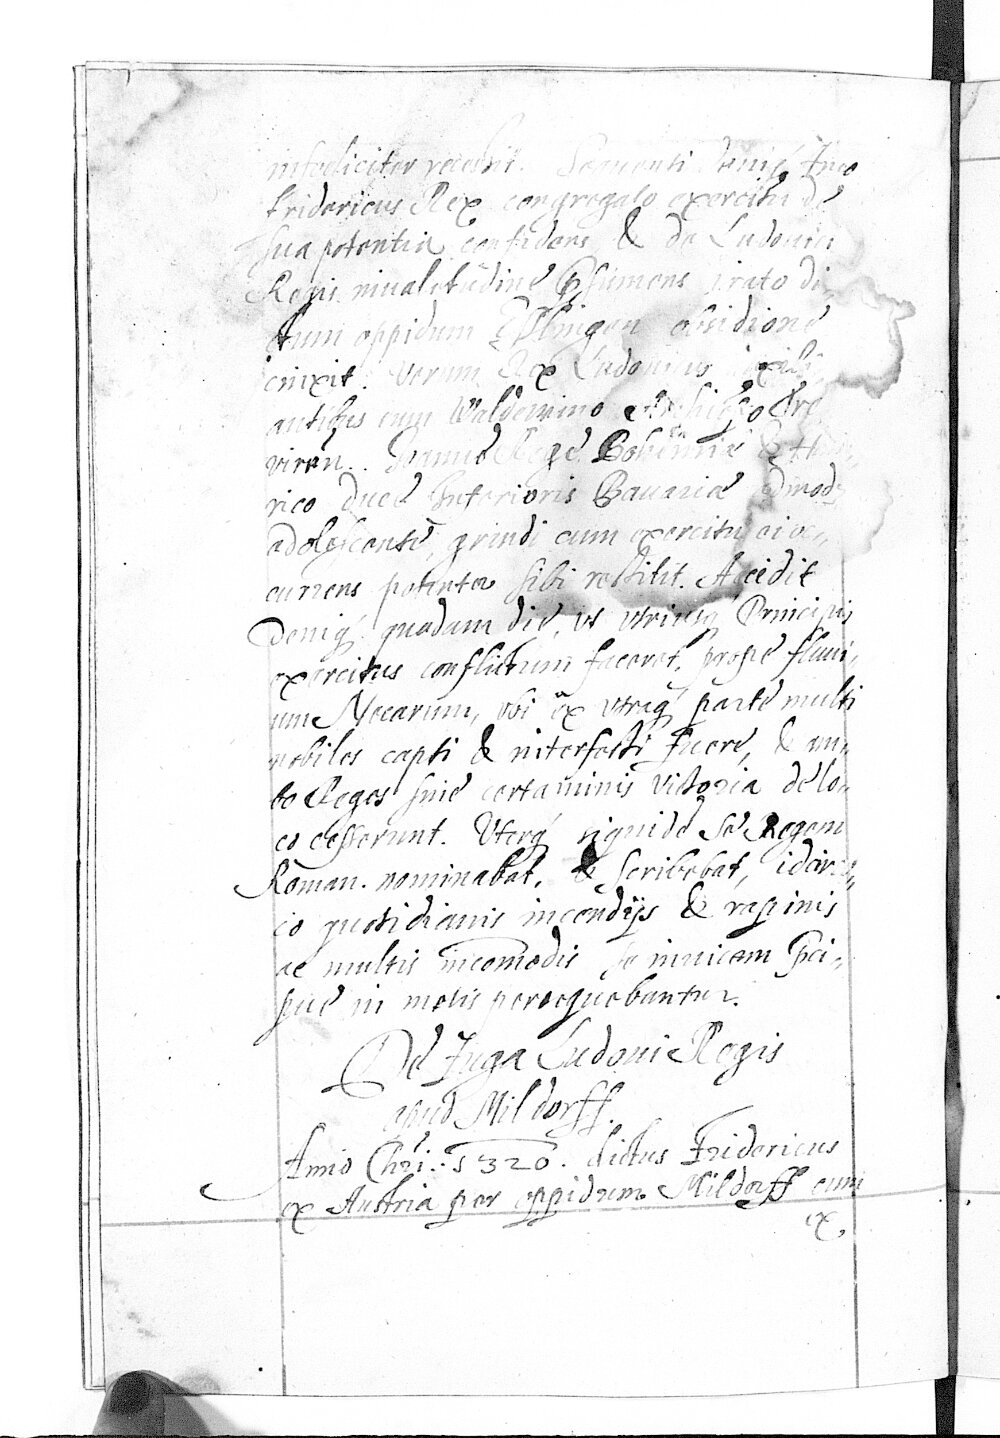 infoeliciter recessit. Sequenti
Fridericus Rex congregato exercitu de
sua potentia confidens, & de Ludouici
Regis inualetudine psumens irato di
ctum oppidum Esslingen obsidione
cinxit. Verum Rex Ludouicus
cum Waldewino Archiepo Tre
viren. Rege Bohemie &
rico duce Inferioris Bauariae admodū
adolescente, grandi cum exercitu ei oc,
currens potenter sibi restitit. Accidit
deniq, quadam die, vt vtriusq Principis
exercitus conflictum faceret, prope fluui,
um Necarum, vbi ex vtraq parte multi
nobiles capti & interfecti fuere, & am,
bo Reges sine certaminis victoria de lo,
co cesserunt. Uterq siquidē se Regem
Roman. nominabat, & scribebat, idcir,
co quotidianis incendijs & rapinis
ac multis incomodis se inuicem
in persequebantur.
De fuga Ludoui Regis
apud Mildorff.
Anno Chri: 1320. dictus Fridericus
ex Austria per oppidum Mildorff cum
ex,